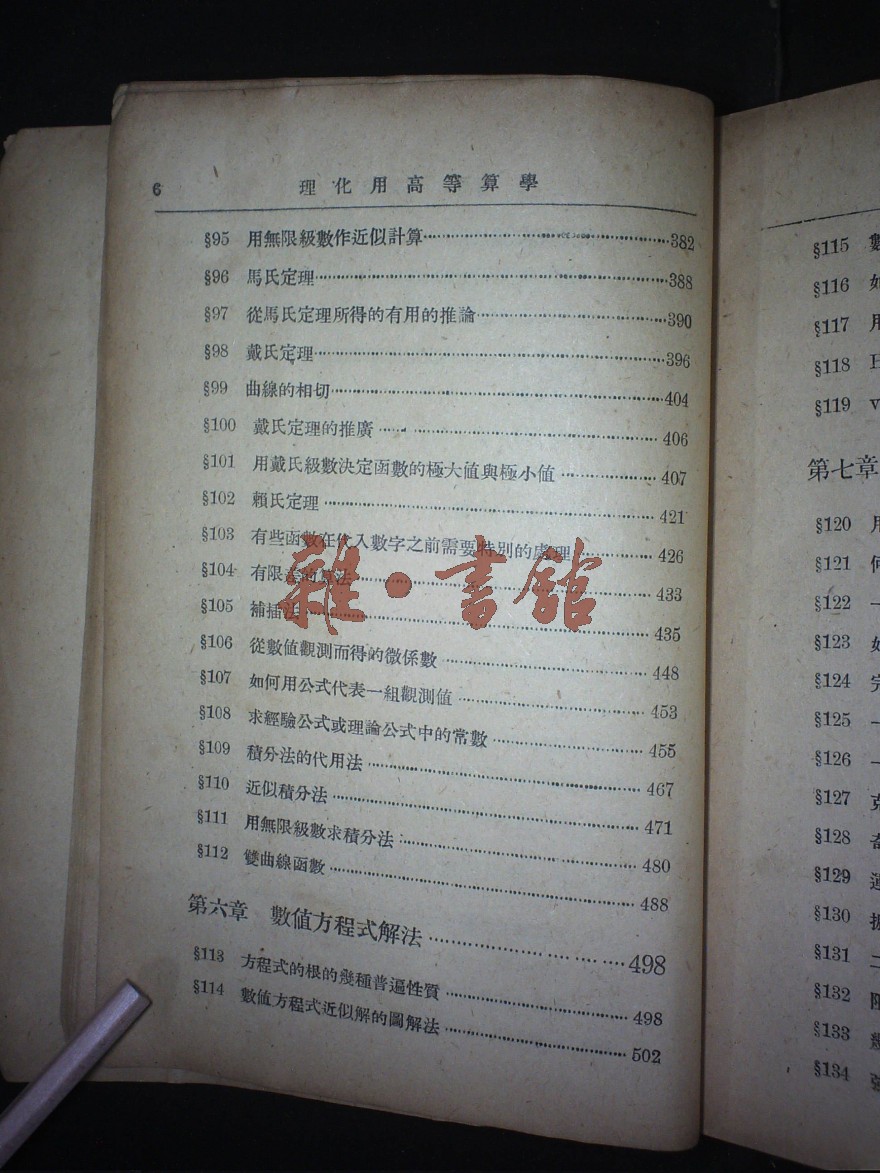 6 理化用高等算學
§95 用無限級數作近似計算 382
§96 馬氏定理 388
§97 從馬氏定理所得的有用的推論 390
§98 戴氏定理 396
§99 曲線的相切 404
§100 戴氏定理的推廣 406
§101 用戴氏級數決定函數的極大值與極小值 407
§102 賴氏定理 421
§103 有些函數在代入數字之前需要特別的處理 426
§104 有限差的算法 433
§105 補插法 435
§106 從數值觀測而得的微係數 448
§107 如何用公式代表一組觀測值 453
§108 求經驗公式或理論公式中的常數 455
§109 積分法的代用法 467
§110 近似積分法 471
§111 用無限級數求積分法 480
§112 雙曲線函數 488
第六章 數値方程式解法 498
§113 方程式的根的幾種普遍性質 498
§114 數値方程式近似解的圖解法 502
雜·書舘
§115
§116 如
§117 用
§118
§119
第七章
§120 用
§121 何
§122 一
§123 如
§124 完
§125 一
§126 一
§127 克
§128
§129 運
§130
§131 二
§132
§133
§134